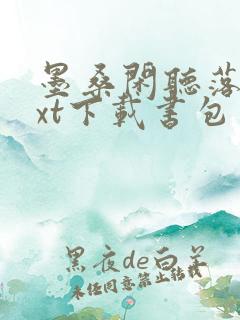 墨桑閑聽落
xt下載書包
黑夜de白羊
未經同意禁止轉載